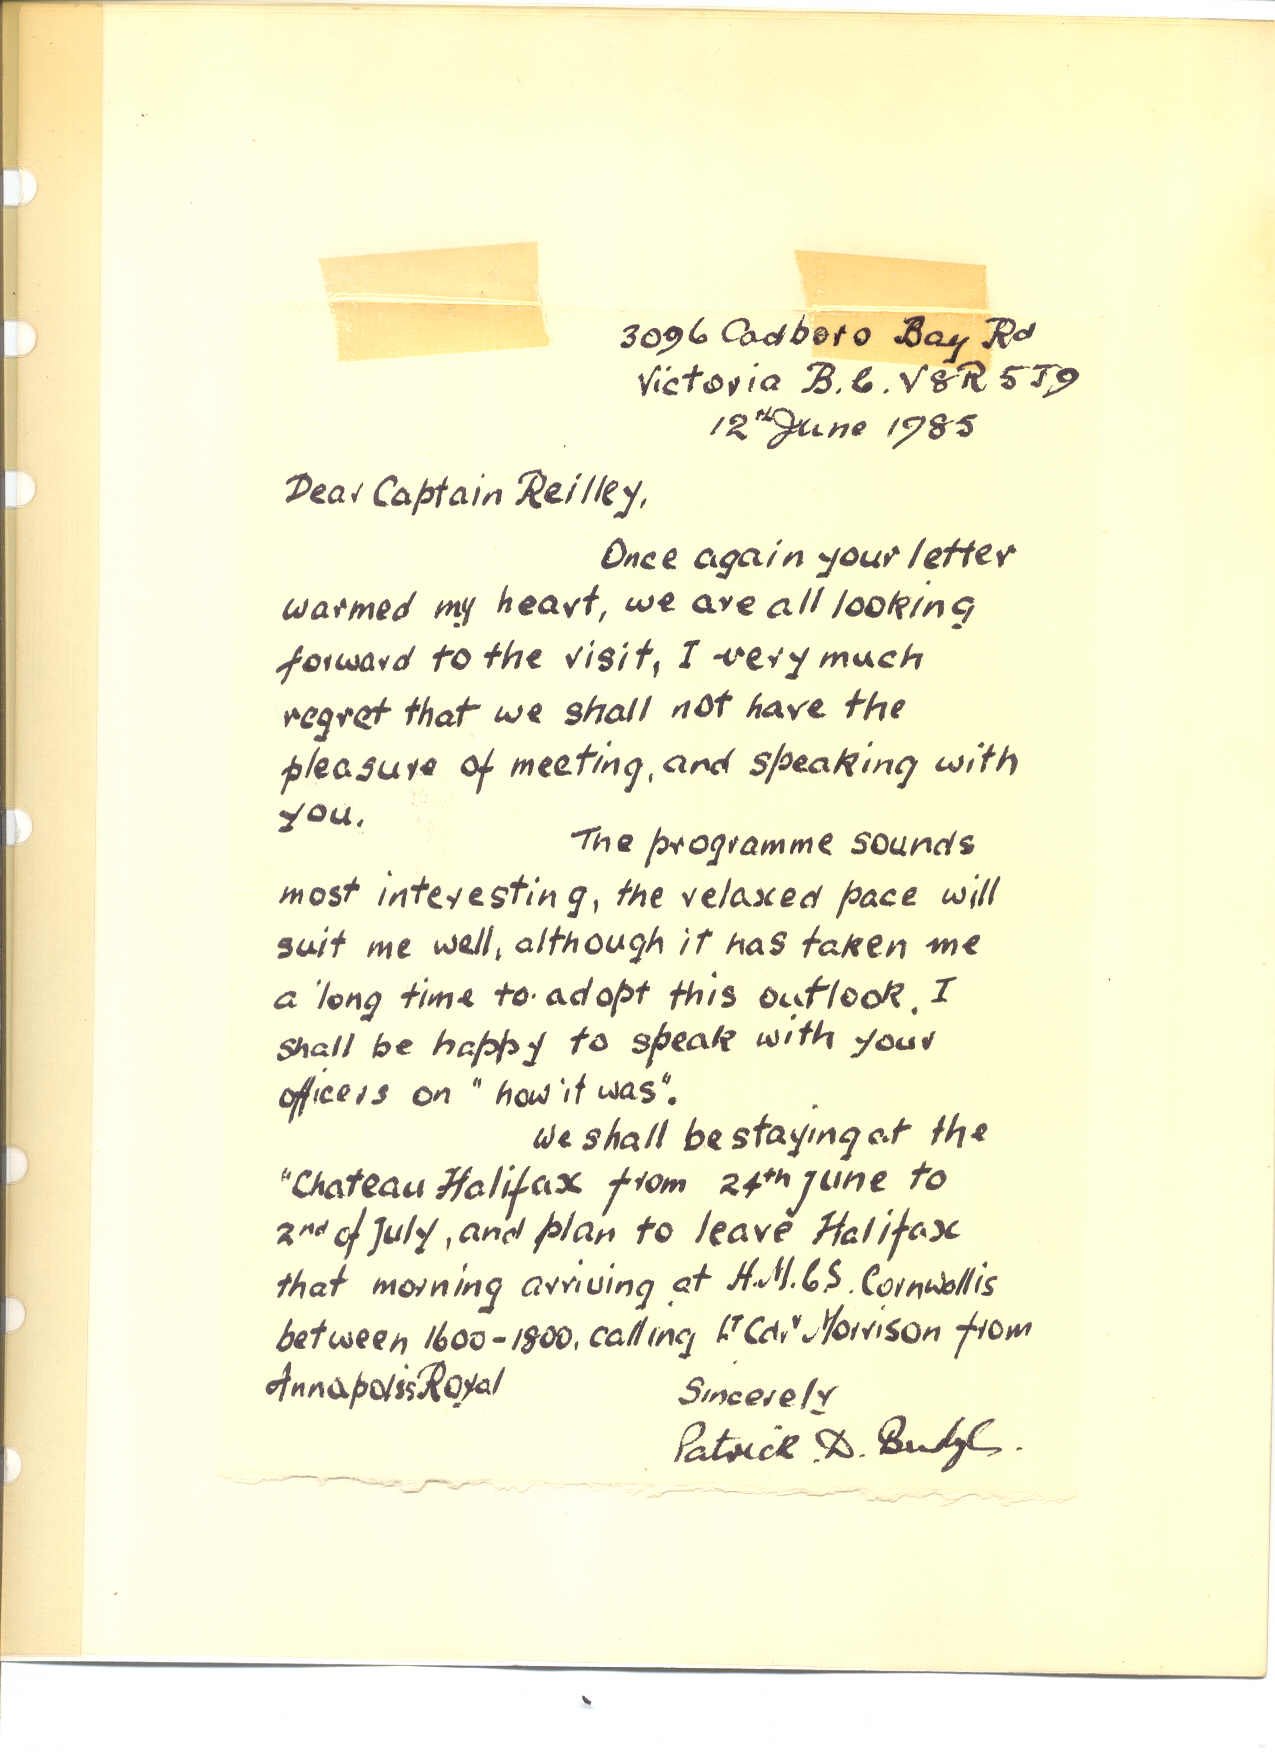 3096 Cadboro Bay Rd
Victoria B.C. V8R 5J9
12th June 1985
Dear Captain Reilley,
Once again your letter
warmed my heart, we are all looking
forward to the visit, I very much
regret that we shall not have the
pleasure of meeting, and speaking with
you.
The programme sounds
most interesting, the relaxed pace will
suit me well, although it has taken me
a long time to adopt this outlook. I
shall be happy to speak with your
officers on "how it was".
We shall be staying at the
"Chateau Halifax from 24th June to
2nd of July, and plan to leave Halifax
that morning arriving at H.M.C.S. Cornwallis
between 1600-1800, calling Lt Cdr Morrison from
Annapolis Royal
Sincerely
Patrick D. Budge.